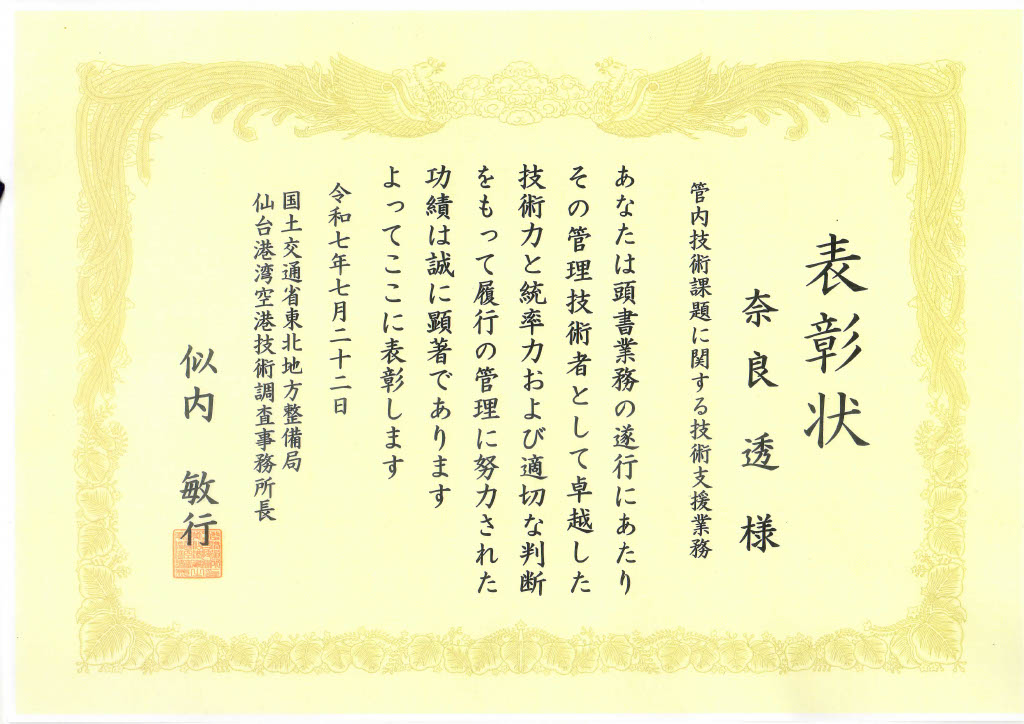 表彰状
奈良透様
管内技術課題に関する技術支援業務
あなたは頭書業務の遂行にあたり
その管理技術者として卓越した
技術力と統率力および適切な判断
をもって履行の管理に努力された
功績は誠に顕著であります
よってここに表彰します
令和七年七月二十二日
国土交通省東北地方整備局
仙台港湾空港技術調査事務所長
似内 敏行